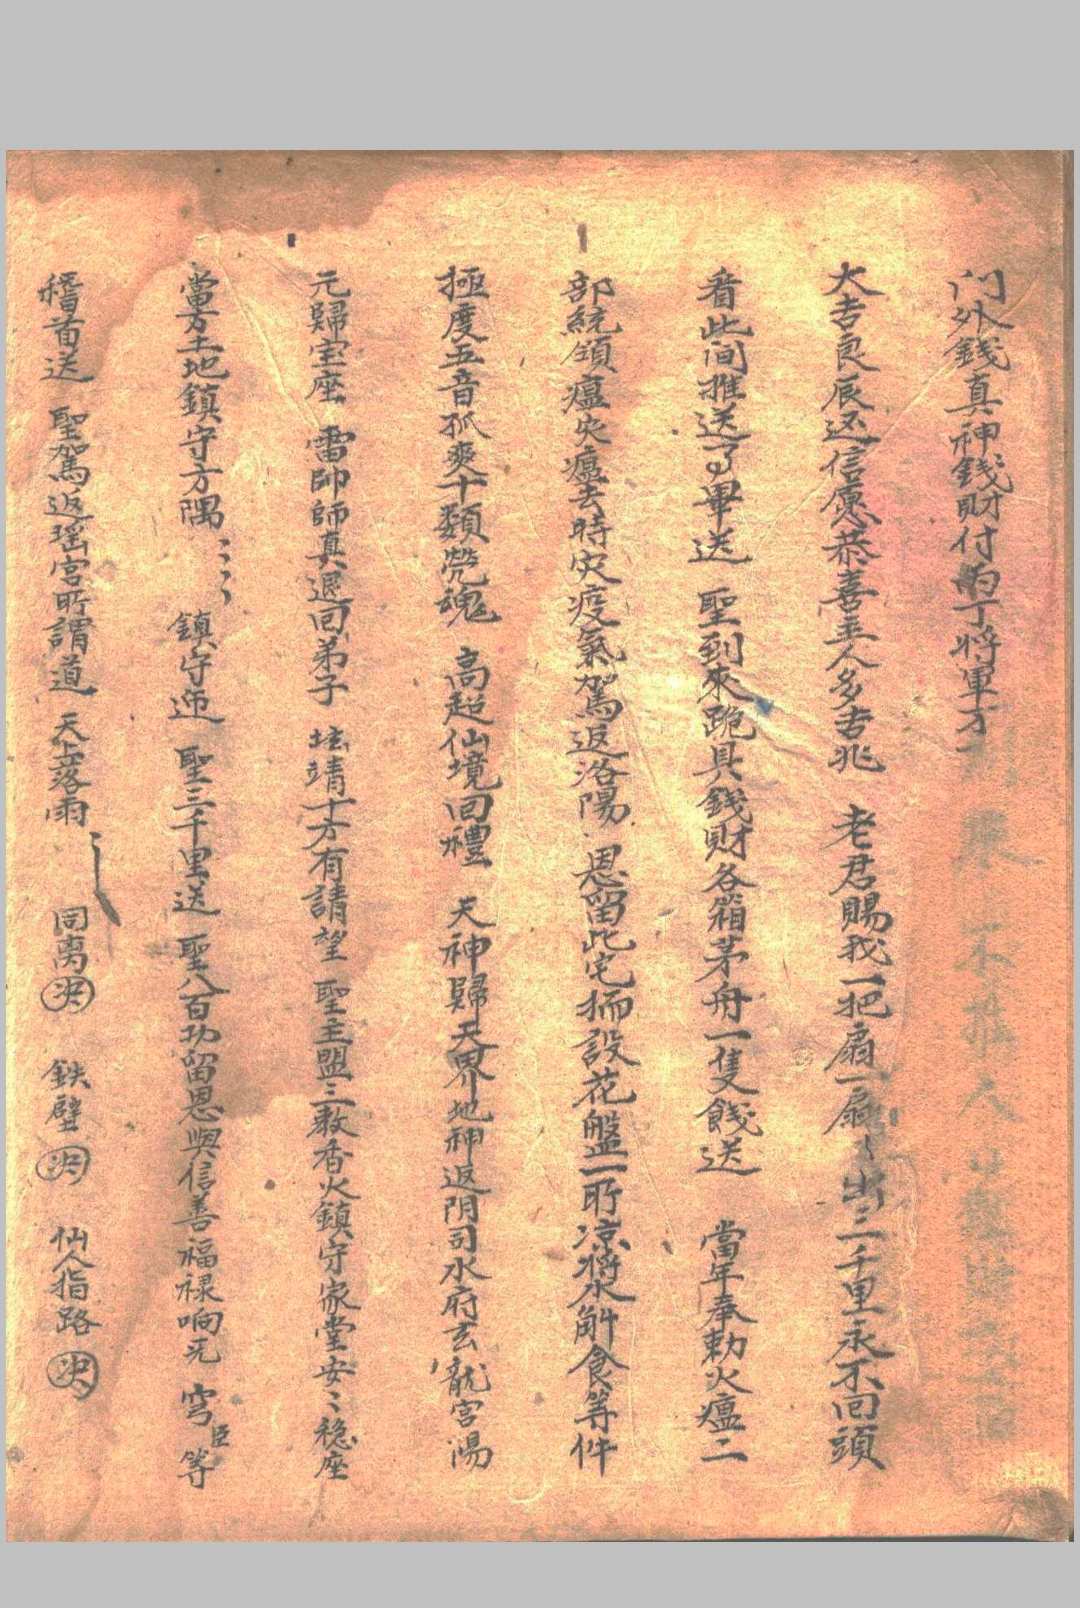 门外錢真神錢財付与丁將軍方
大吉良辰还信愿恭喜主人多吉兆 老君賜我一把扇一扇〻出三千里永不回頭
看此间推送了畢送 聖到來跪具錢財各箱茅舟一隻餞送 當年奉勅火瘟二
部統領瘟灾瘟去時灾疫氣駕返洛陽恩留此宅擂設花盤一所凉將水斛食等件
極度五音孤爽十類㷀魂 高超仙境回禮 天神歸天界地神返阴司水府玄龍宮陽
元歸宝座 雷帅師真退回弟子 坛靖十方有請望 聖主盟三教香火鎮守家堂安〻穏座
當方土地鎮守方隅〻〻〻 鎮守迎 聖三千里送 聖八百功留恩與信善福禄响无 穹臣等
稽首送 聖駕返瑶宫所謂道 天上落雨 同离决 鉄壁决 仙人指路决